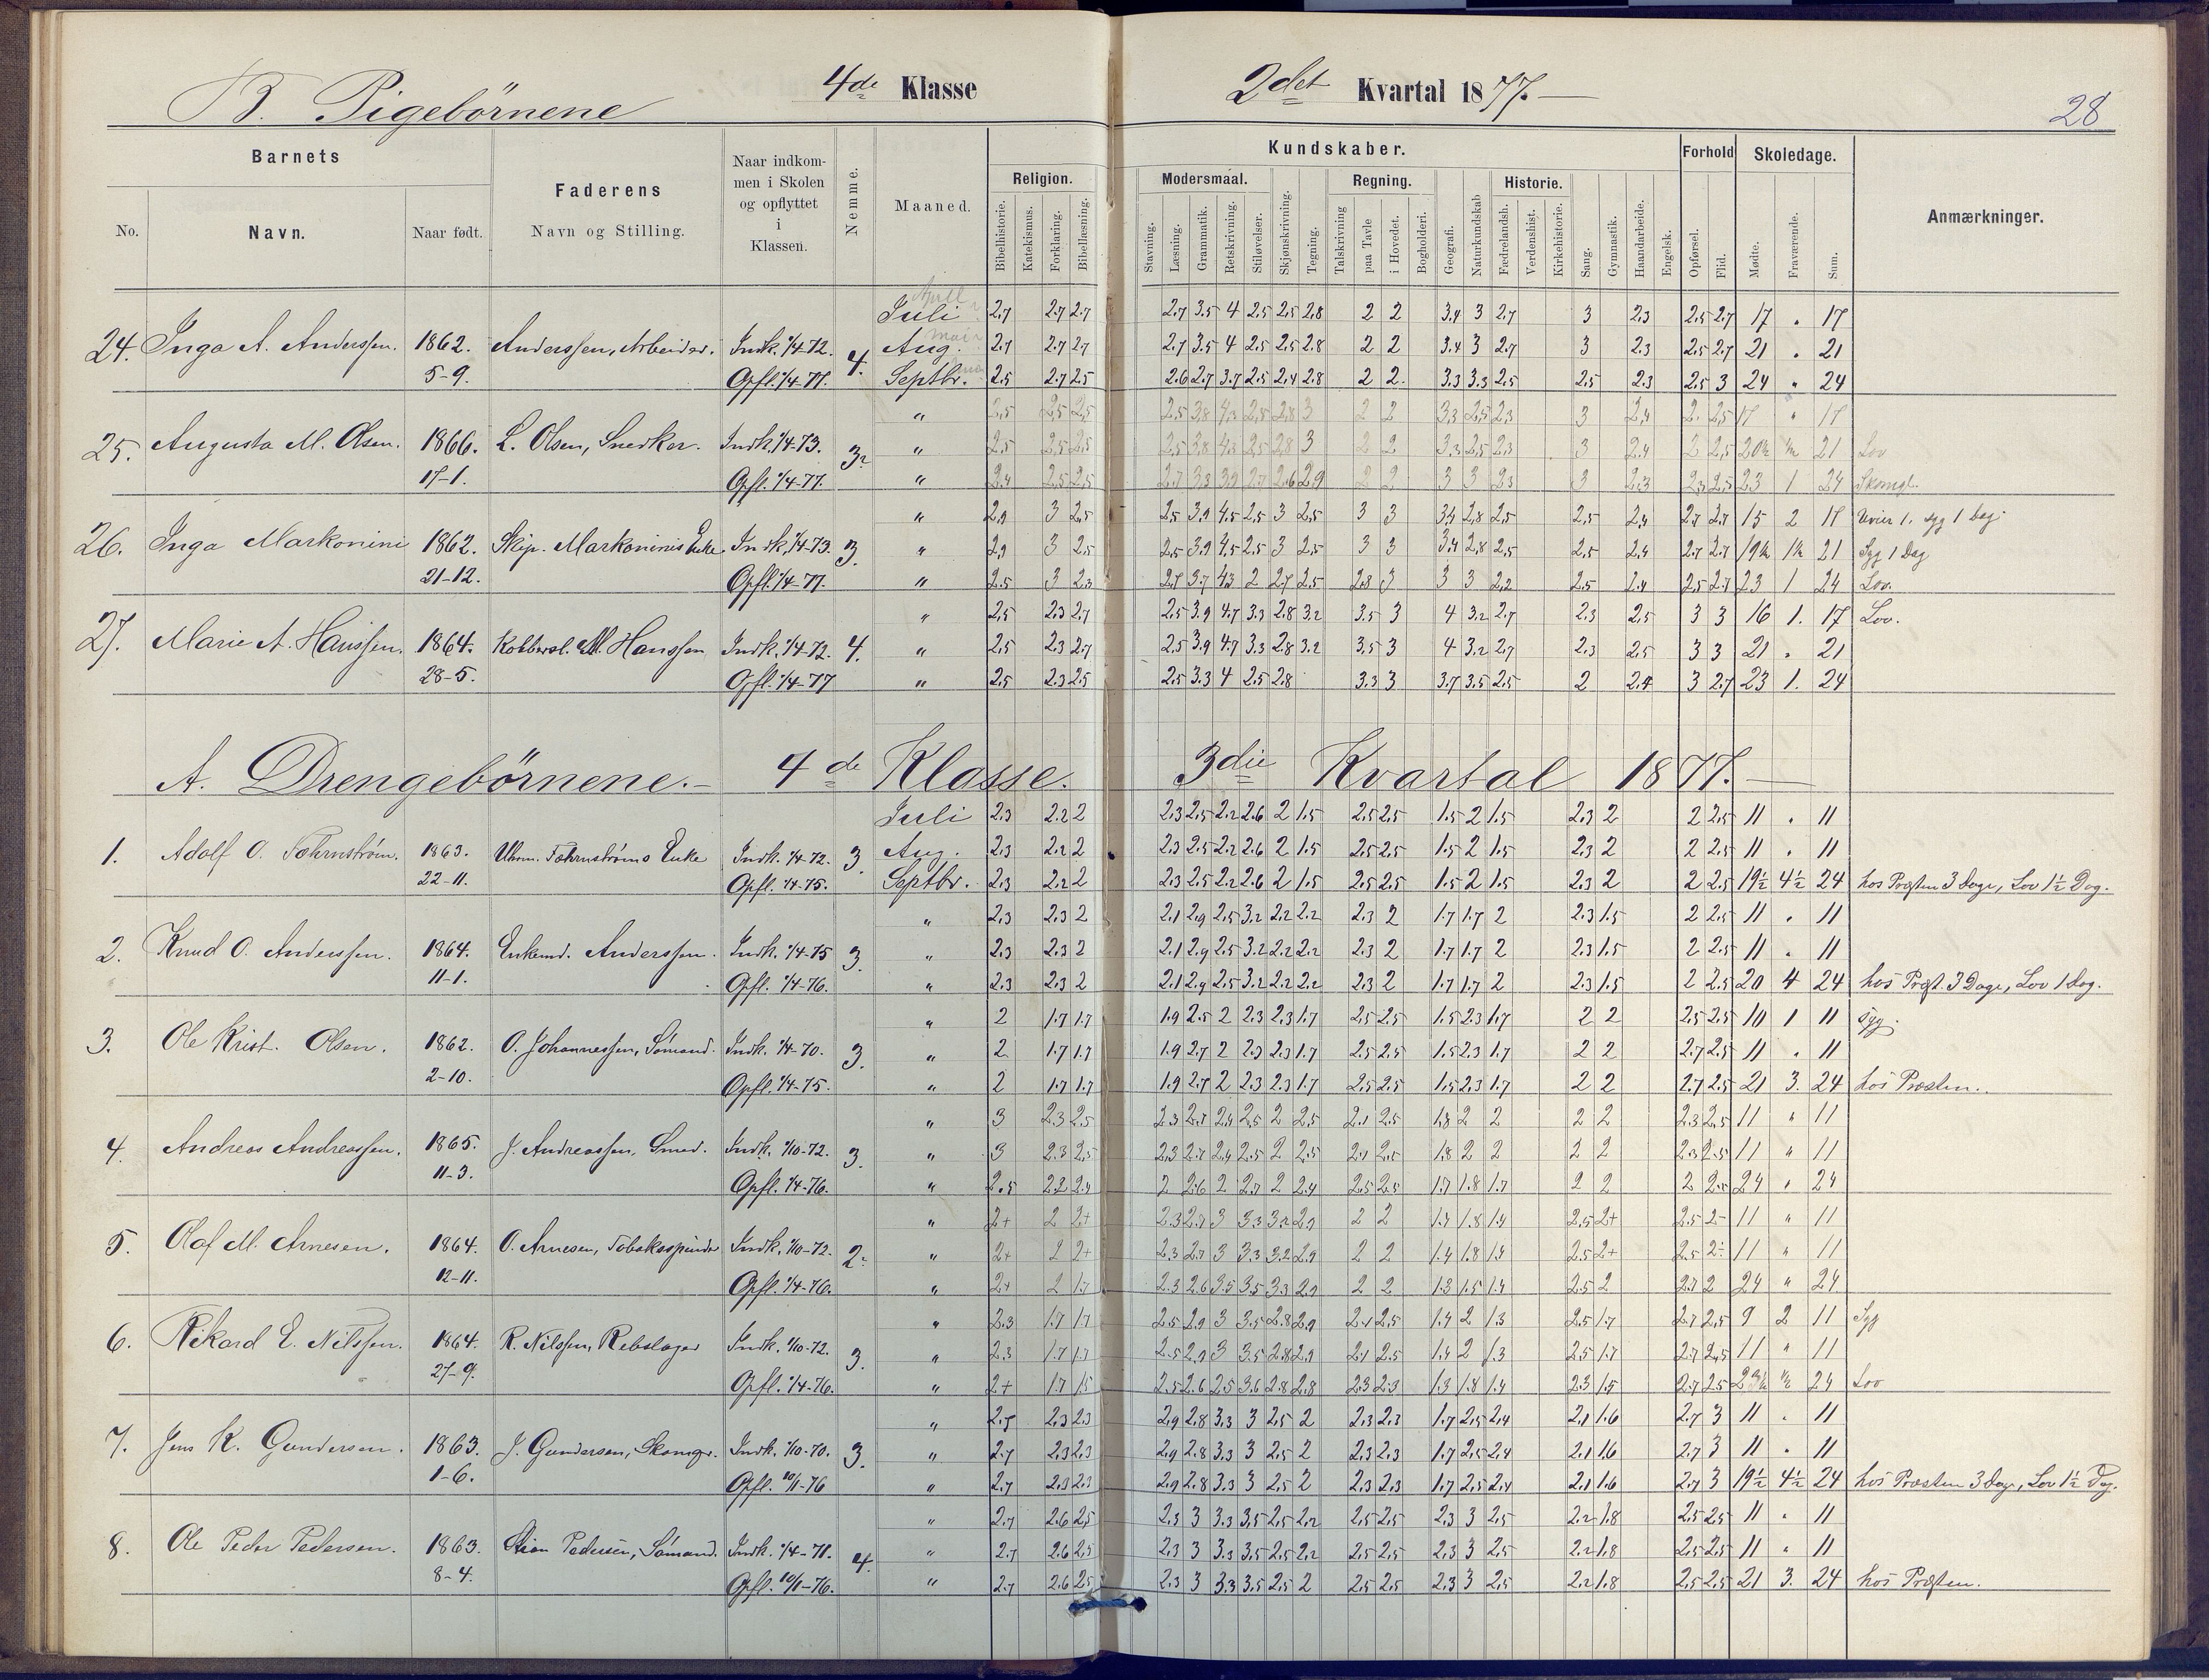 B. Pigebörnene 4de Klasse 2det Kvartal 1877.
28
Barnets
No.
Navn.
Naar født.
Faderens
Navn og Stilling.
Naar indkom-
men i Skolen
og opflyttet
i
Klassen.
Nemme.
Maaned.
Kundskaber.
Religion.
Bibelhistorie.
Katekismus.
Forklaring.
Bibellæsning.
Modersmaal.
Stavning.
Læsning.
Grammatik.
Retskrivning.
Stiløvelser.
Skjønskrivning.
Tegning.
Regning.
Talskrivning
paa Tavle
i Hovedet.
Bogholderi.
Geografi.
Naturkundskab
Historie.
Fædrelandsh.
Verdenshist.
Kirkehistorie.
Sang.
Gymnastik.
Haandarbeide.
Engelsk.
Forhold
Opførsel.
Flid.
Skoledage.
Mødte.
Fraværende.
Sum.
Anmærkninger.
April
Juli 2.7 2.7 2.7 2.7 3.5 4 2.5 2.5 2.8 2 2 3.4 3 2.7 3 2.3 2.5 2.7 17 " 17
24. Inga A. Anderssen. 1862. Anderssen, Arbeider. Indk. 1/4-72. 4. Aug. 2.7 2.7 2.7 2.7 3.5 4 2.5 2.5 2.8 2 2 3.4 3 2.7 3 2.3 2.5 2.7 21 " 21
5-9. Opfl. 1/4-77. Septbr. 2.5 2.7 2.5 2.6 2.7 3.7 2.5 2.4 2.8 2 2 3.3 3.3 2.5 2.5 2.3 2.5 3 24 " 24
" 2,5 2,5 2,5 2,5 3,8 4,3 2,5 2,8 3 2 2 3,3 2,5 2,3 3 2,4 2 2,5 17 " 17
25. Augusta M. Olsen. 1866. L. Olsen, Snedker. Indk. 1/4-73. 3 " 2,5 2,5 2,5 2,5 3,8 4,3 2,5 2,8 3 2 2 3,3 2,5 2,3 3 2,4 2 2,5 20½ ½ 21 Lov
17-1. Opfl. 1/4-77. " 2,4 2,5 2,5 2,7 3,3 3,9 2,7 2,6 2,9 2 2 3 3 2,3 3 2,3 2,3 2,5 23 1 24 Skomgl.
" 2,9 3 2,5 2,5 3,9 4,5 2,5 3 2,5 3 3 3,4 2,8 2,5 2,5 2,4 2,7 2,7 15 2 17 Uveir 1. syg 1 Dag.
26. Inga Markonini 1862. Skip. Markoninis Enke. Indk. 1/4-73. 3. " 2,9 3 2,5 2,5 3,9 4,5 2,5 3 2,5 3 3 3,4 2,8 2,5 2,5 2,4 2,7 2,7 19½ 1½ 21 Syg 1 Dag
21-12. Opfl. 1/4-77. " 2.5 3 2.3 2.7 3.7 4.3 2 2.7 2.5 2.8 3 3 3 2.2 2.5 2.4 2.5 2.7 23 1 24 Lov.
" 2,5 2.3 2.7 2.5 3.9 4.7 3.3 2.8 3.2 3.5 3 4 3.2 2.7 2.3 2.5 3 3 16 1. 17 Lov.
27. Marie A. Hanssen. 1864. Kobbersl. M. Hanssen Indk. 1/4-72. 4. " 2.5 2.3 2.7 2.5 3.9 4.7 3.3 2.8 3.2 3.5 3 4 3.2 2.7 2.3 2.5 3 3 21 " 21
28-5. Opfl. 1/4-77 " 2.5 2.3 2.5 2.5 3.3 4 2.5 2.8 3.3 3 3.7 3.5 2.5 2 2.4 3 2.7 23 1. 24
A. Drengebörnene.- 4de Klasse. 3die Kvartal 1877.
Juli 2.3 2.2 2 2.3 2.5 2.2 2.6 2 1.5 2.5 2.5 1.5 2 1.5 2.3 2 2 2.5 11 " 11
1. Adolf O. Fahrnstrøm. 1863. Uhrm. Fahrnstrøms Enke Indk. 1/4-72. 3. Aug. 2.3 2.2 2 2.3 2.5 2.2 2.6 2 1.5 2.5 2.5 1.5 2 1.5 2.3 2 2 2.5 11 " 11
22-11. Opfl. 1/4-75. Septbr. 2.3 2.2 2 2.3 2.5 2.2 2.6 2 1.5 2.5 2.5 1.5 2 1.5 2.3 2 2 2.5 19½ 4½ 24 hos Præsten 3 Dage, Lov 1½ Dag.
" 2.3 2.3 2 2.1 2.9 2.5 3.2 2.2 2.2 2.3 2 1.7 1.7 2 2.3 1.5 2 2.5 11 " 11
2. Knud O. Anderssen. 1864. Enkemd. Anderssen. Indk. 1/4-75 3. " 2.3 2.3 2 2.1 2.9 2.5 3.2 2.2 2.2 2.3 2 1.7 1.7 2 2.3 1.5 2 2.5 11 " 11
11-1. Opfl. 1/4-76. " 2.3 2.3 2 2.1 2.9 2.5 3.2 2.2 2.2 2.3 2 1.7 1.7 2 2.3 1.5 2 2.5 20 4 24 hos Præst. 3 Dage, Lov 1 Dag.
" 2 1.7 1.7 1.9 2.5 2 2.3 2.3 1.7 2.5 2.5 1.5 2.3 1.7 2 2 2.5 2.5 10 1 11 Syg.
3. Ole Krist. Olsen. 1862. O. Johannessen, Sömand. Indk. 1/4-70. 3. " 2 1.7 1.7 1.9 2.7 2 2.3 2.3 1.7 2.5 2.5 1.5 2.3 1.7 2 2 2.7 2.5 11 " 11
2-10. Opfl. 1/4-75. " 2 1.7 1.7 1.9 2.7 2 2.3 2.3 1.7 2.5 2.5 1.5 2.3 1.7 2 2 2.7 2.5 21 3. 24 hos Præsten.
" 3 2.3 2.5 2.3 2.7 2.4 2.5 2 2.5 2.1 2.5 1.8 2 2 2 2 2.3 2.5 11 " 11
4. Andreas Andreassen. 1865. J. Andreassen, Smed. Indk. 1/10-72. 3. " 3 2.3 2.5 2.3 2.7 2.4 2.5 2 2.5 2.1 2.5 1.8 2 2 2 2 2.3 2.5 11 " 11
11-3. Opfl. 1/4-76. " 2.5 2.2 2.4 2 2.6 2 2.7 2 2.4 2.5 2.5 1.7 1.8 1.7 2 2 2 2.5 24 " 24
" 2+ 2 2+ 2.3 2.7 3 3.3 3.2 2.9 2 2 1.4 1.8 1.4 2.5 2+ 2.5 2- 11 " 11
5. Olaf M. Arnesen. 1864. O. Arnesen, Tobaksspinder Indk. 1/10-72. 2. " 2+ 2 2+ 2.3 2.7 3 3.3 3.2 2.9 2 2 1.4 1.8 1.4 2.5 2+ 2.5 2- 11 " 11
12-11. Opfl. 1/4-76. " 2+ 2 1.7 2.3 2.6 3.5 3.5 3.3 2.9 2 2 1.3 1.5 1.4 2.5 2 2.7 2 24 " 24
" 2.3 1.7 1.7 2.5 2.9 3 3.5 2.8 2.9 2.1 2.5 1.4 2 1.3 2.5 1.7 2.7 2.5 9 2 11 Syg
6. Rikard E. Nilssen. 1864. R. Nilssen, Rebslager Indk. 1/10-72. 3. " 2.3 1.7 1.7 2.5 2.9 3 3.5 2.8 2.9 2.1 2.5 1.4 2 1.3 2.5 1.7 2.7 2.5 11 " 11
27-9. Opfl. 1/4-76. " 2+ 1.7 1.5 2.5 2.6 2.5 3.6 2.8 2.8 2.3 2.3 1.3 1.8 1.4 2.3 1.5 2.7 2.5 23½ ½ 24 Lov
" 2.7 2.3 2.3 2.9 2.8 3.3 3 2.5 2 2.3 2.3 1.7 2.5 2.4 2.1 1.6 2.7 3 11 " 11
7. Jens K. Gundersen. 1863. J. Gundersen, Skomgr. Indk. 1/10-70. 3. " 2.7 2.3 2.3 2.9 2.8 3.3 3 2.5 2 2.3 2.3 1.7 2.5 2.4 2.1 1.6 2.7 3 11 " 11
1-6. Opfl. 10/1-76 " 2.7 2.3 2.3 2.9 2.8 3.3 3 2.5 2 2.3 2.3 1.7 2.5 2.4 2.1 1.6 2.7 3 19½ 4½ 24 hos Præsten 3 Dage, Lov 1½ Dag.
" 2.7 2.6 2.5 2.3 3 3.3 3.5 2.5 2.2 2.5 2.5 2.3 3 2.5 2.2 1.8 2.5 2.5 11 " 11
8. Ole Peder Pedersen. 1863. Pedersen, Sömand. Indk. 1/4-71. 4. " 2.7 2.6 2.5 2.3 3 3.3 3.5 2.5 2.2 2.5 2.5 2.3 3 2.5 2.2 1.8 2.5 2.5 11 " 11
8-4. Opfl. 10/1-76. " 2.7 2.6 2.5 2.3 3 3.3 3.5 2.5 2 2.5 2.5 2.3 3 2.5 2.2 1.8 2.5 2.5 21 3. 24 hos Præsten.